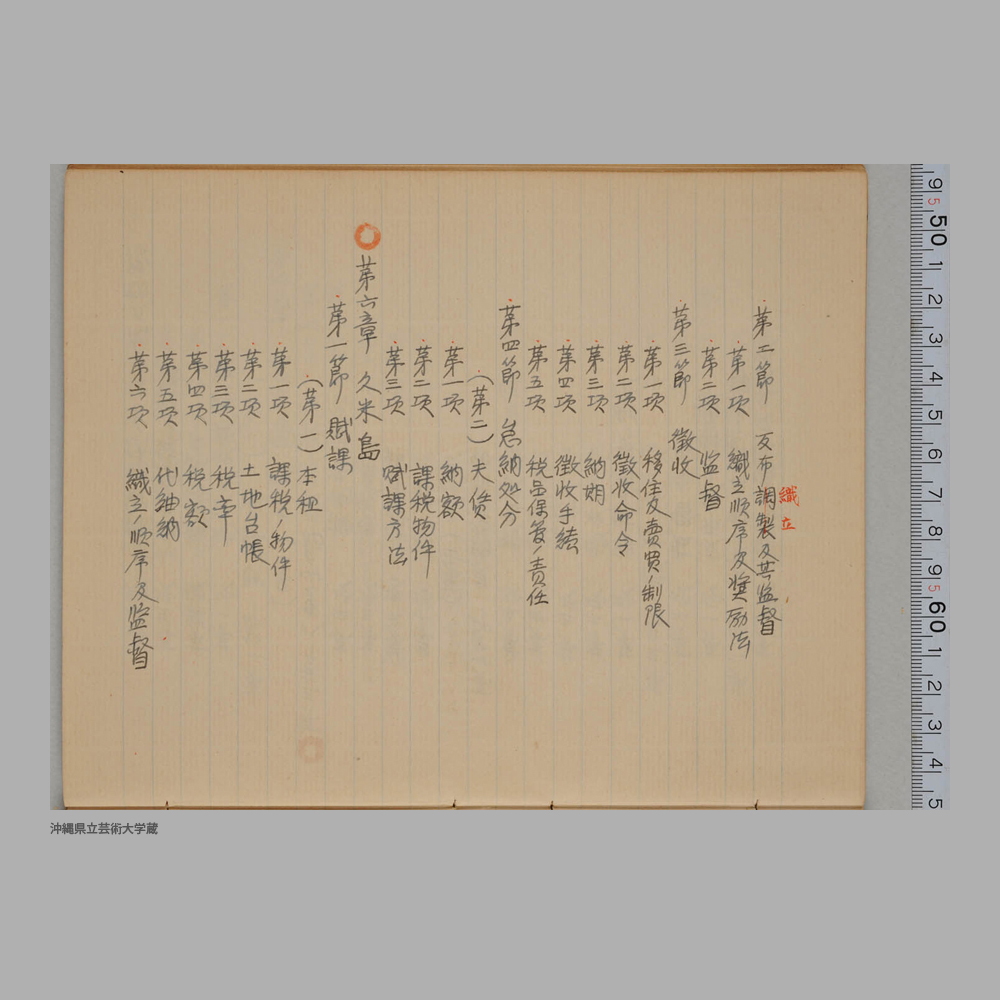 第二節 反布調製及其監督
織立
第一項 織立順序及奨励法
第二項 監督
第三節 徴收
第一項 移住及賣買ノ制限
第二項 徴收命令
第三項 納期
第四項 徴收手続
第五項 税品保管ノ責任
第四節 怠納処分
(第二) 夫賃
第一項 納額
第二項 課税物件
第三項 賦課方法
第六章 久米島
第一節 賦課
(第一) 本租
第一項 課税ノ物件
第二項 土地台帳
第三項 税率
第四項 税額
第五項 代紬納
第六項 織立ノ順序及監督
9 5 50 1 2 3 4 5 6 7 8 9 5 60 1 2 3 4 5
沖縄県立芸術大学蔵